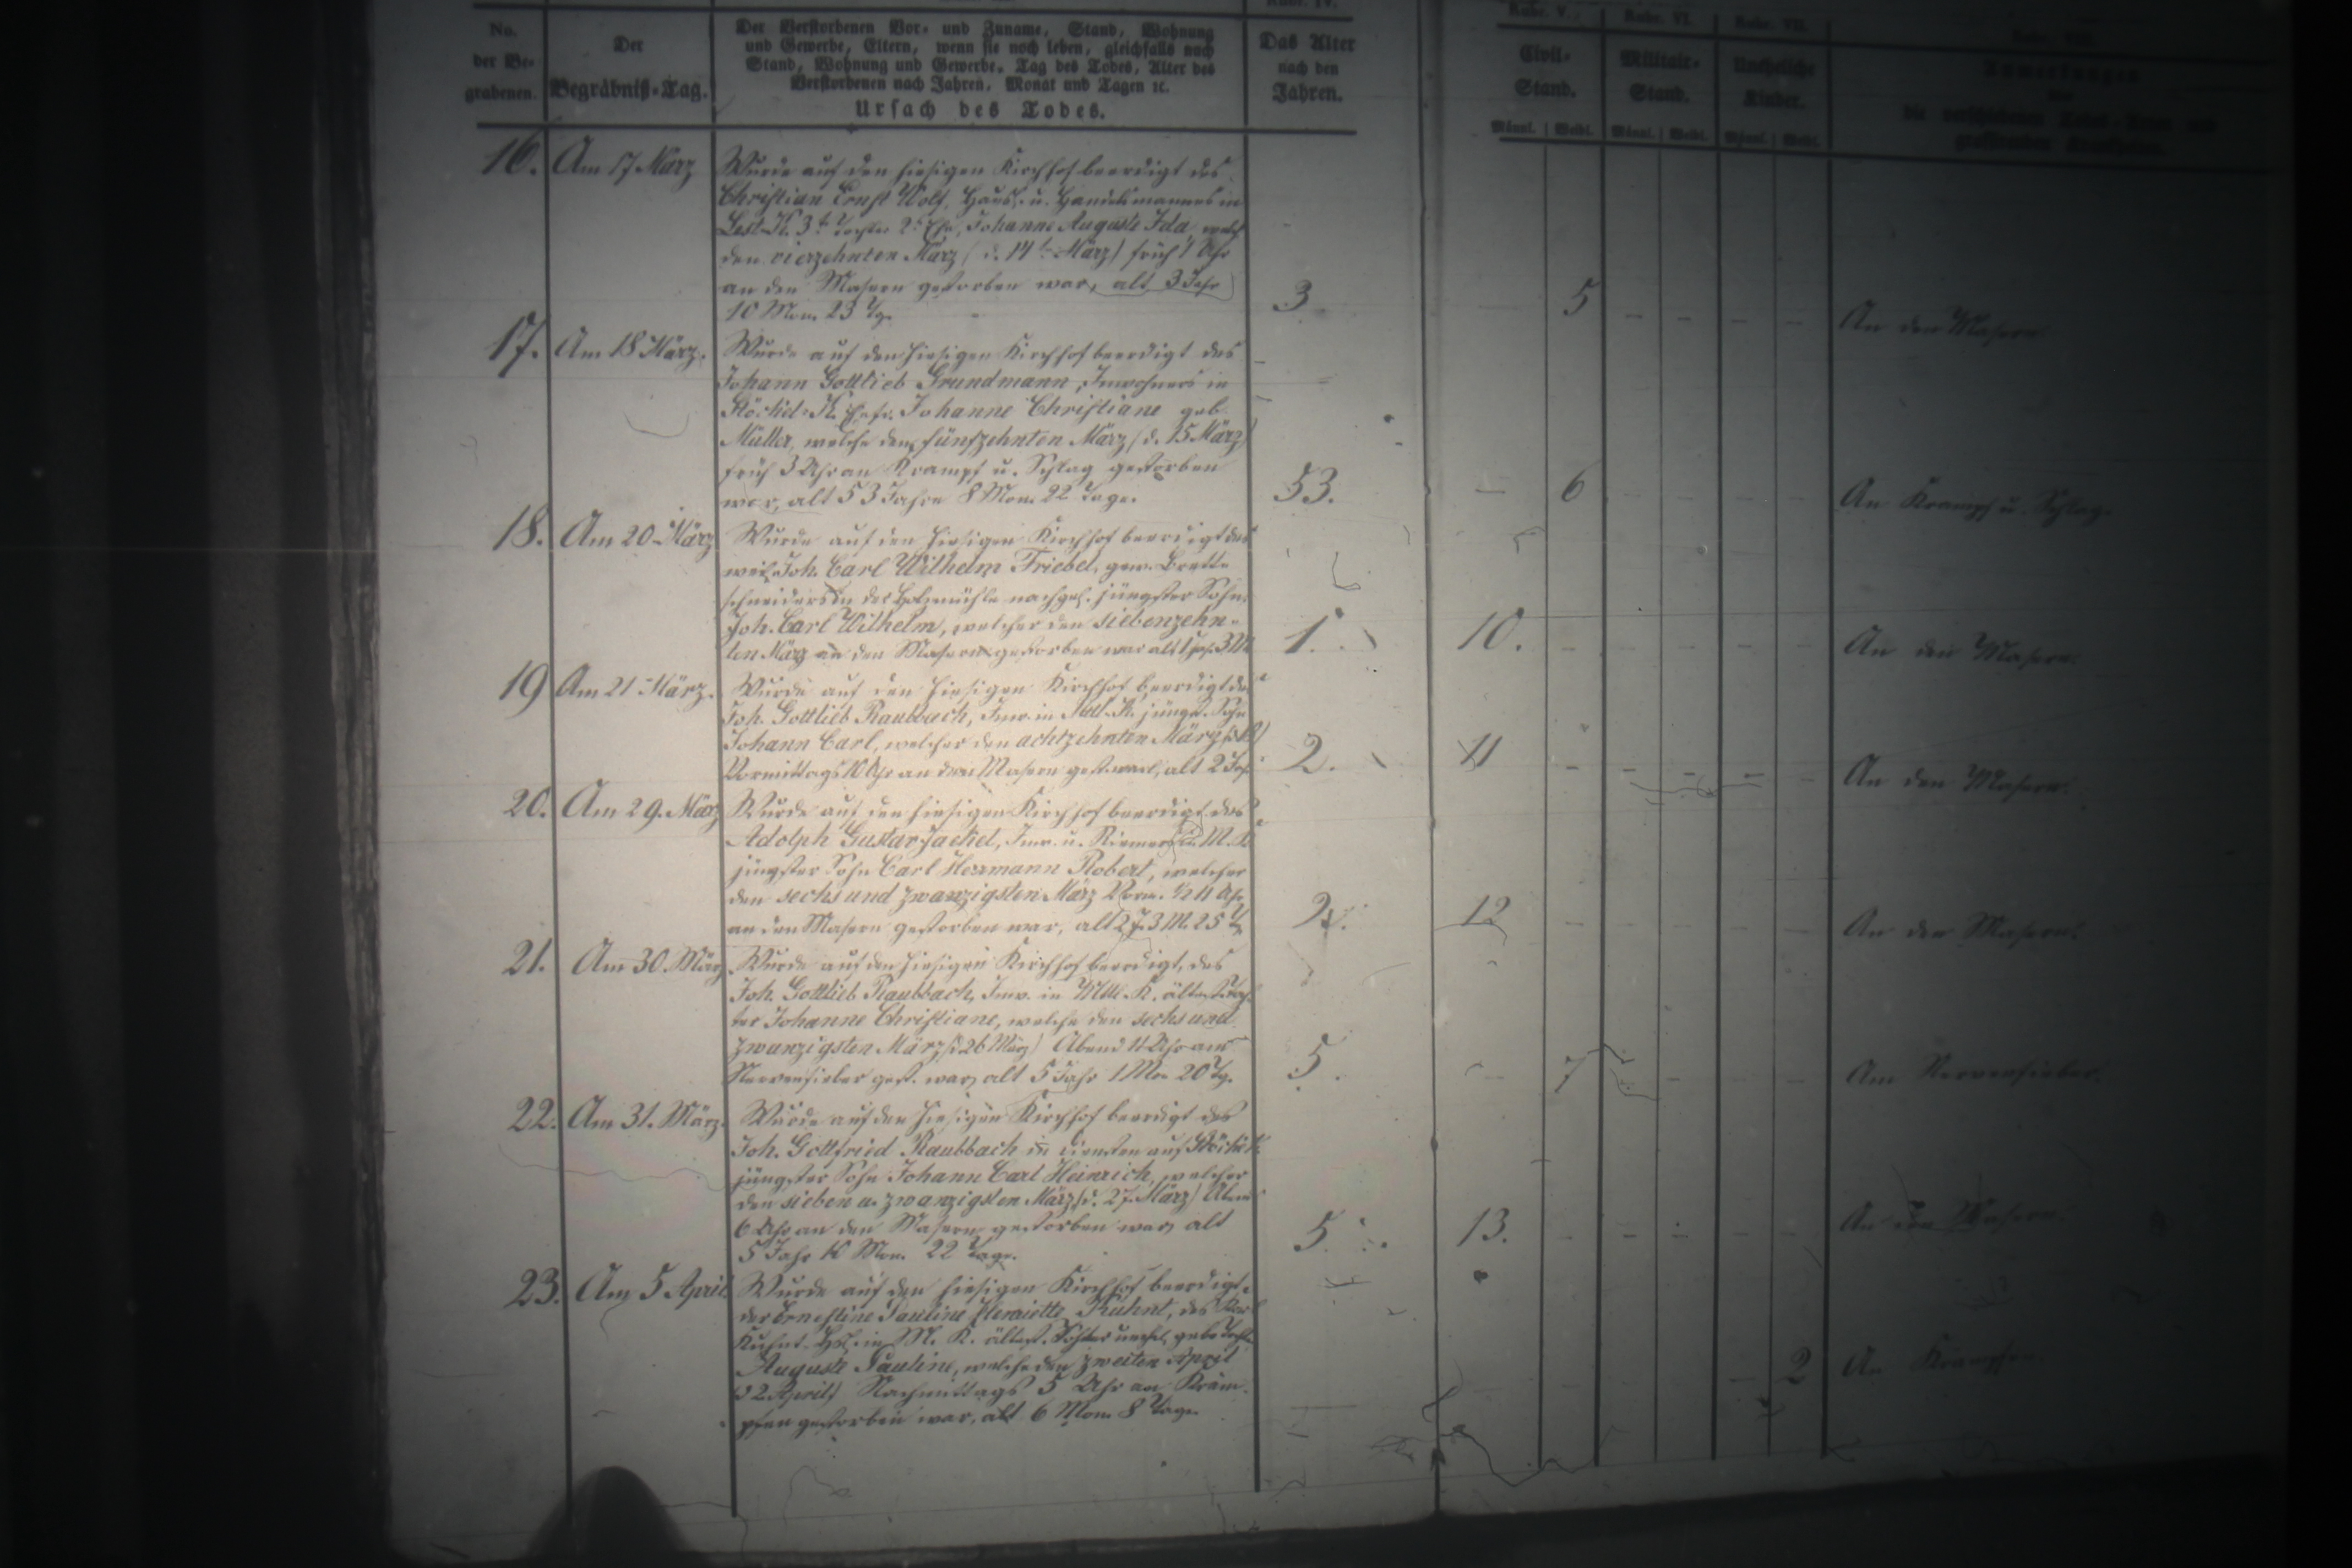 No. der Begrabenen.
Der Begräbniß-Tag.
Der Verstorbenen Vor- und Zuname, Stand, Wohnung
und Gewerbe, Eltern, wenn sie noch leben, gleichfalls nach
Stand, Wohnung und Gewerbe, Tag des Todes, Alter des
Verstorbenen nach Jahren, Monat und Tagen ꝛc.
Ursach des Todes.
Rubr. IV.
Das Alter
nach den
Jahren.
Rubr. V.
Civil-
Stand.
Männl. | Weibl.
Rubr. VI.
Militair-
Stand.
Männl. | Weibl.
Rubr. VII.
Uneheliche
Kinder.
Männl. | Weibl.
16. Am 17 März
Wurde auf den hiesigen Kirchhof beerdigt des
Christian Ernst Wolf, Häusl. u. Handelsmannes in
3t. Tochter 2r Ehe, Johanne Auguste Ida, welch
den vierzehnten März (d. 14t. März) früh 1 Uhr
an den Masern gestorben war, alt 3 Jahr
10 Mon. 23 Tg.
3 — 5 — — — — An den Masern
17. Am 18 März.
Wurde auf den hiesigen Kirchhof beerdigt des
Johann Gottlieb Grundmann, Inwohners in
Stöckicht-K. Ehefr. Johanne Christiane geb.
Müller, welche den fünfzehnten März (d. 15 März)
früh 3 Uhr an Krampf u. Schlag gestorben
war, alt 53 Jahre 8 Mon. 22 Tage.
53. — 6 — — — — An Krampf u. Schlag.
18. Am 20 März
Wurde auf den hiesigen Kirchhof beerdigt des
weil. Joh. Carl Wilhelm Friebel, gew. Brett-
schneiders in der Holzmühle nachgel. jüngster Sohn
Joh. Carl Wilhelm, welcher den siebenzehn-
ten März an den Masern gestorben war alt 1 Jah. 3 M
1. 10. — — — — — An den Masern.
19 Am 21 März.
Wurde auf den hiesigen Kirchhof beerdigt des
Joh. Gottlieb Raubbach, Inw. in Mitl-K. jüngst. Sohn
Johann Carl, welcher den achtzehnten März
Vormittags 10 Uhr an den Masern gest. war, alt 2 Jah.
2. 11 — — — — — An den Masern.
20. Am 29. März
Wurde auf den hiesigen Kirchhof beerdigt des
Adolph Gustav Jackel, Inw. u. Riemers in M. K.
jüngster Sohn Carl Hermann Robert, welcher
den sechs und zwanzigsten März Vorm. ½ 11 Uhr
an den Masern gestorben war, alt 2 J. 3 M. 25 Tg
2. 12 — An den Masern.
21. Am 30. März
Wurde auf den hiesigen Kirchhof beerdigt, des
Joh. Gottlieb Raubbach, Inw. in Mttl. K. älteste Toch-
ter Johanne Christiane, welche den sechs und
zwanzigsten März (d. 26 März) Abend 11 Uhr am
Nervenfieber gest. war, alt 5 Jahr 1 Mo. 20 Tg.
5. — 7 — — — Am Nervenfieber.
22. Am 31. März.
Wurde auf den hiesigen Kirchhof beerdigt des
Joh. Gottfried Raubbach in Diensten auf Stöckicht
jüngster Sohn Johann Carl Heinrich, welcher
den sieben u. zwanzigsten März (d. 27. März) Abend
6 Uhr an den Masern gestorben war, alt
5 Jahr 10 Mon. 22 Tage.
5. 13. — — — — — An den Masern.
23. Am 5 April
Wurde auf den hiesigen Kirchhof beerdigt
der Ernestine Pauline Henriette Kuhnt, des Karl
Kuhnt in M. K. ältest. Tochter unehel. geb. Tocht.
Auguste Pauline, welche den zweiten April
(d 2. April) Nachmittags 5 Uhr an Kräm-
pfen gestorben war, alt 6 Mon. 8 Tage.
— 2 An Krämpfen